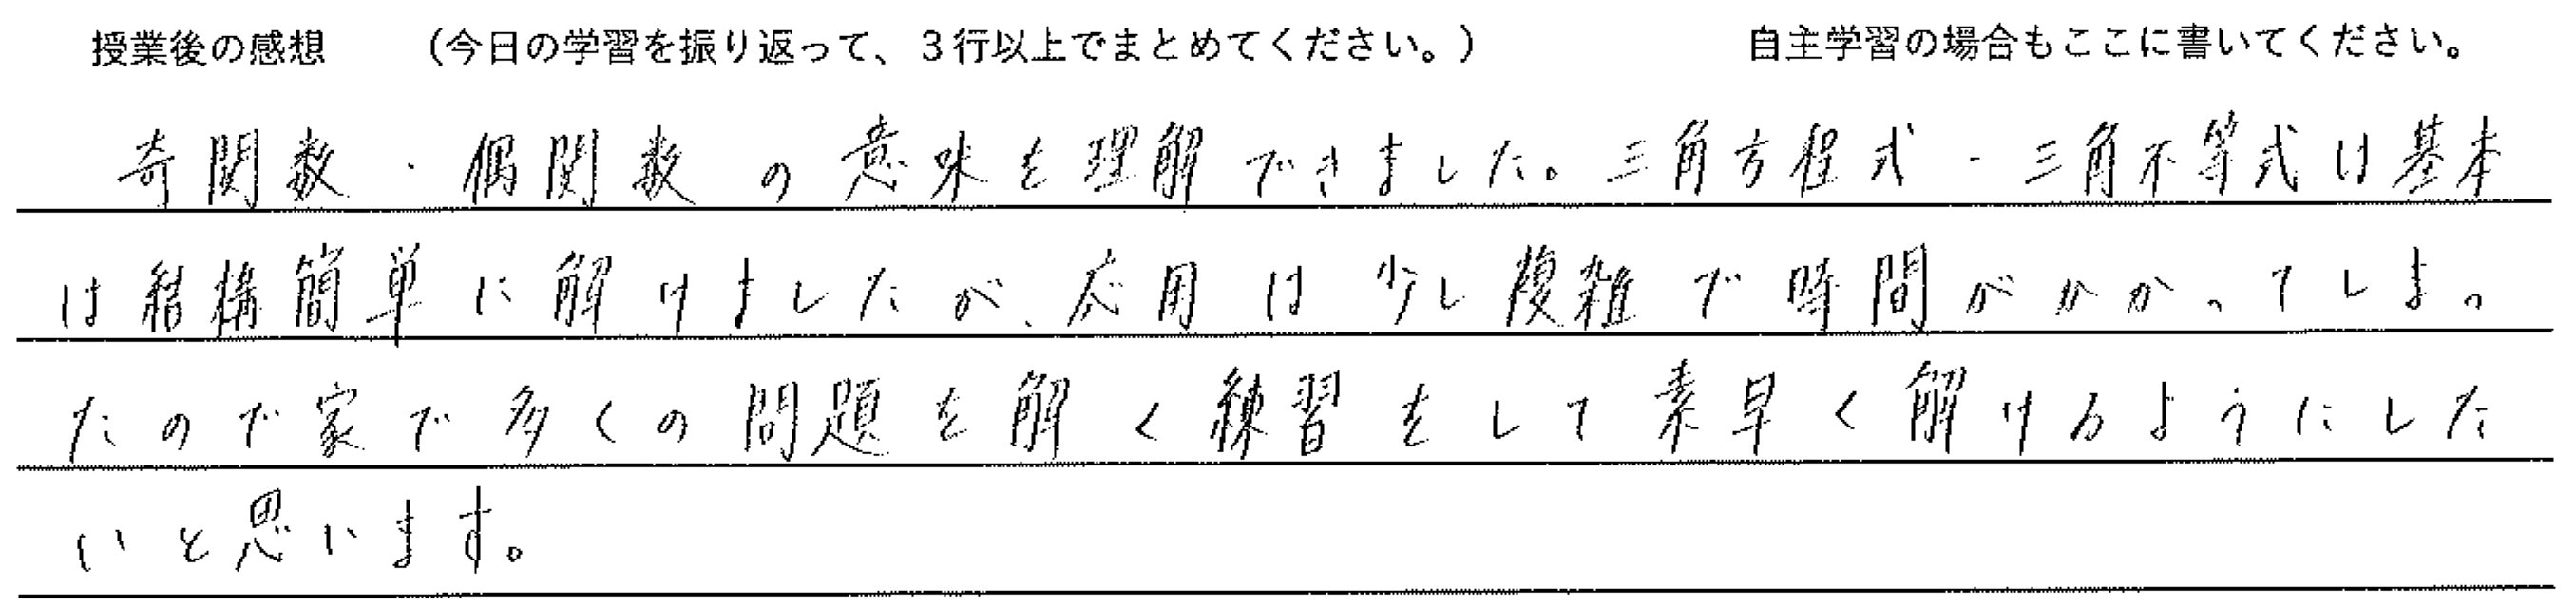 授業後の感想　（今日の学習を振り返って、３行以上でまとめてください。）　自主学習の場合もここに書いてください。
奇関数・偶関数の意味を理解できました。三角方程式・三角不等式は基本
は結構簡単に解けましたが、応用は少し複雑で時間がかかってしまっ
たので家で多くの問題を解く練習をして素早く解けるようにした
いと思います。